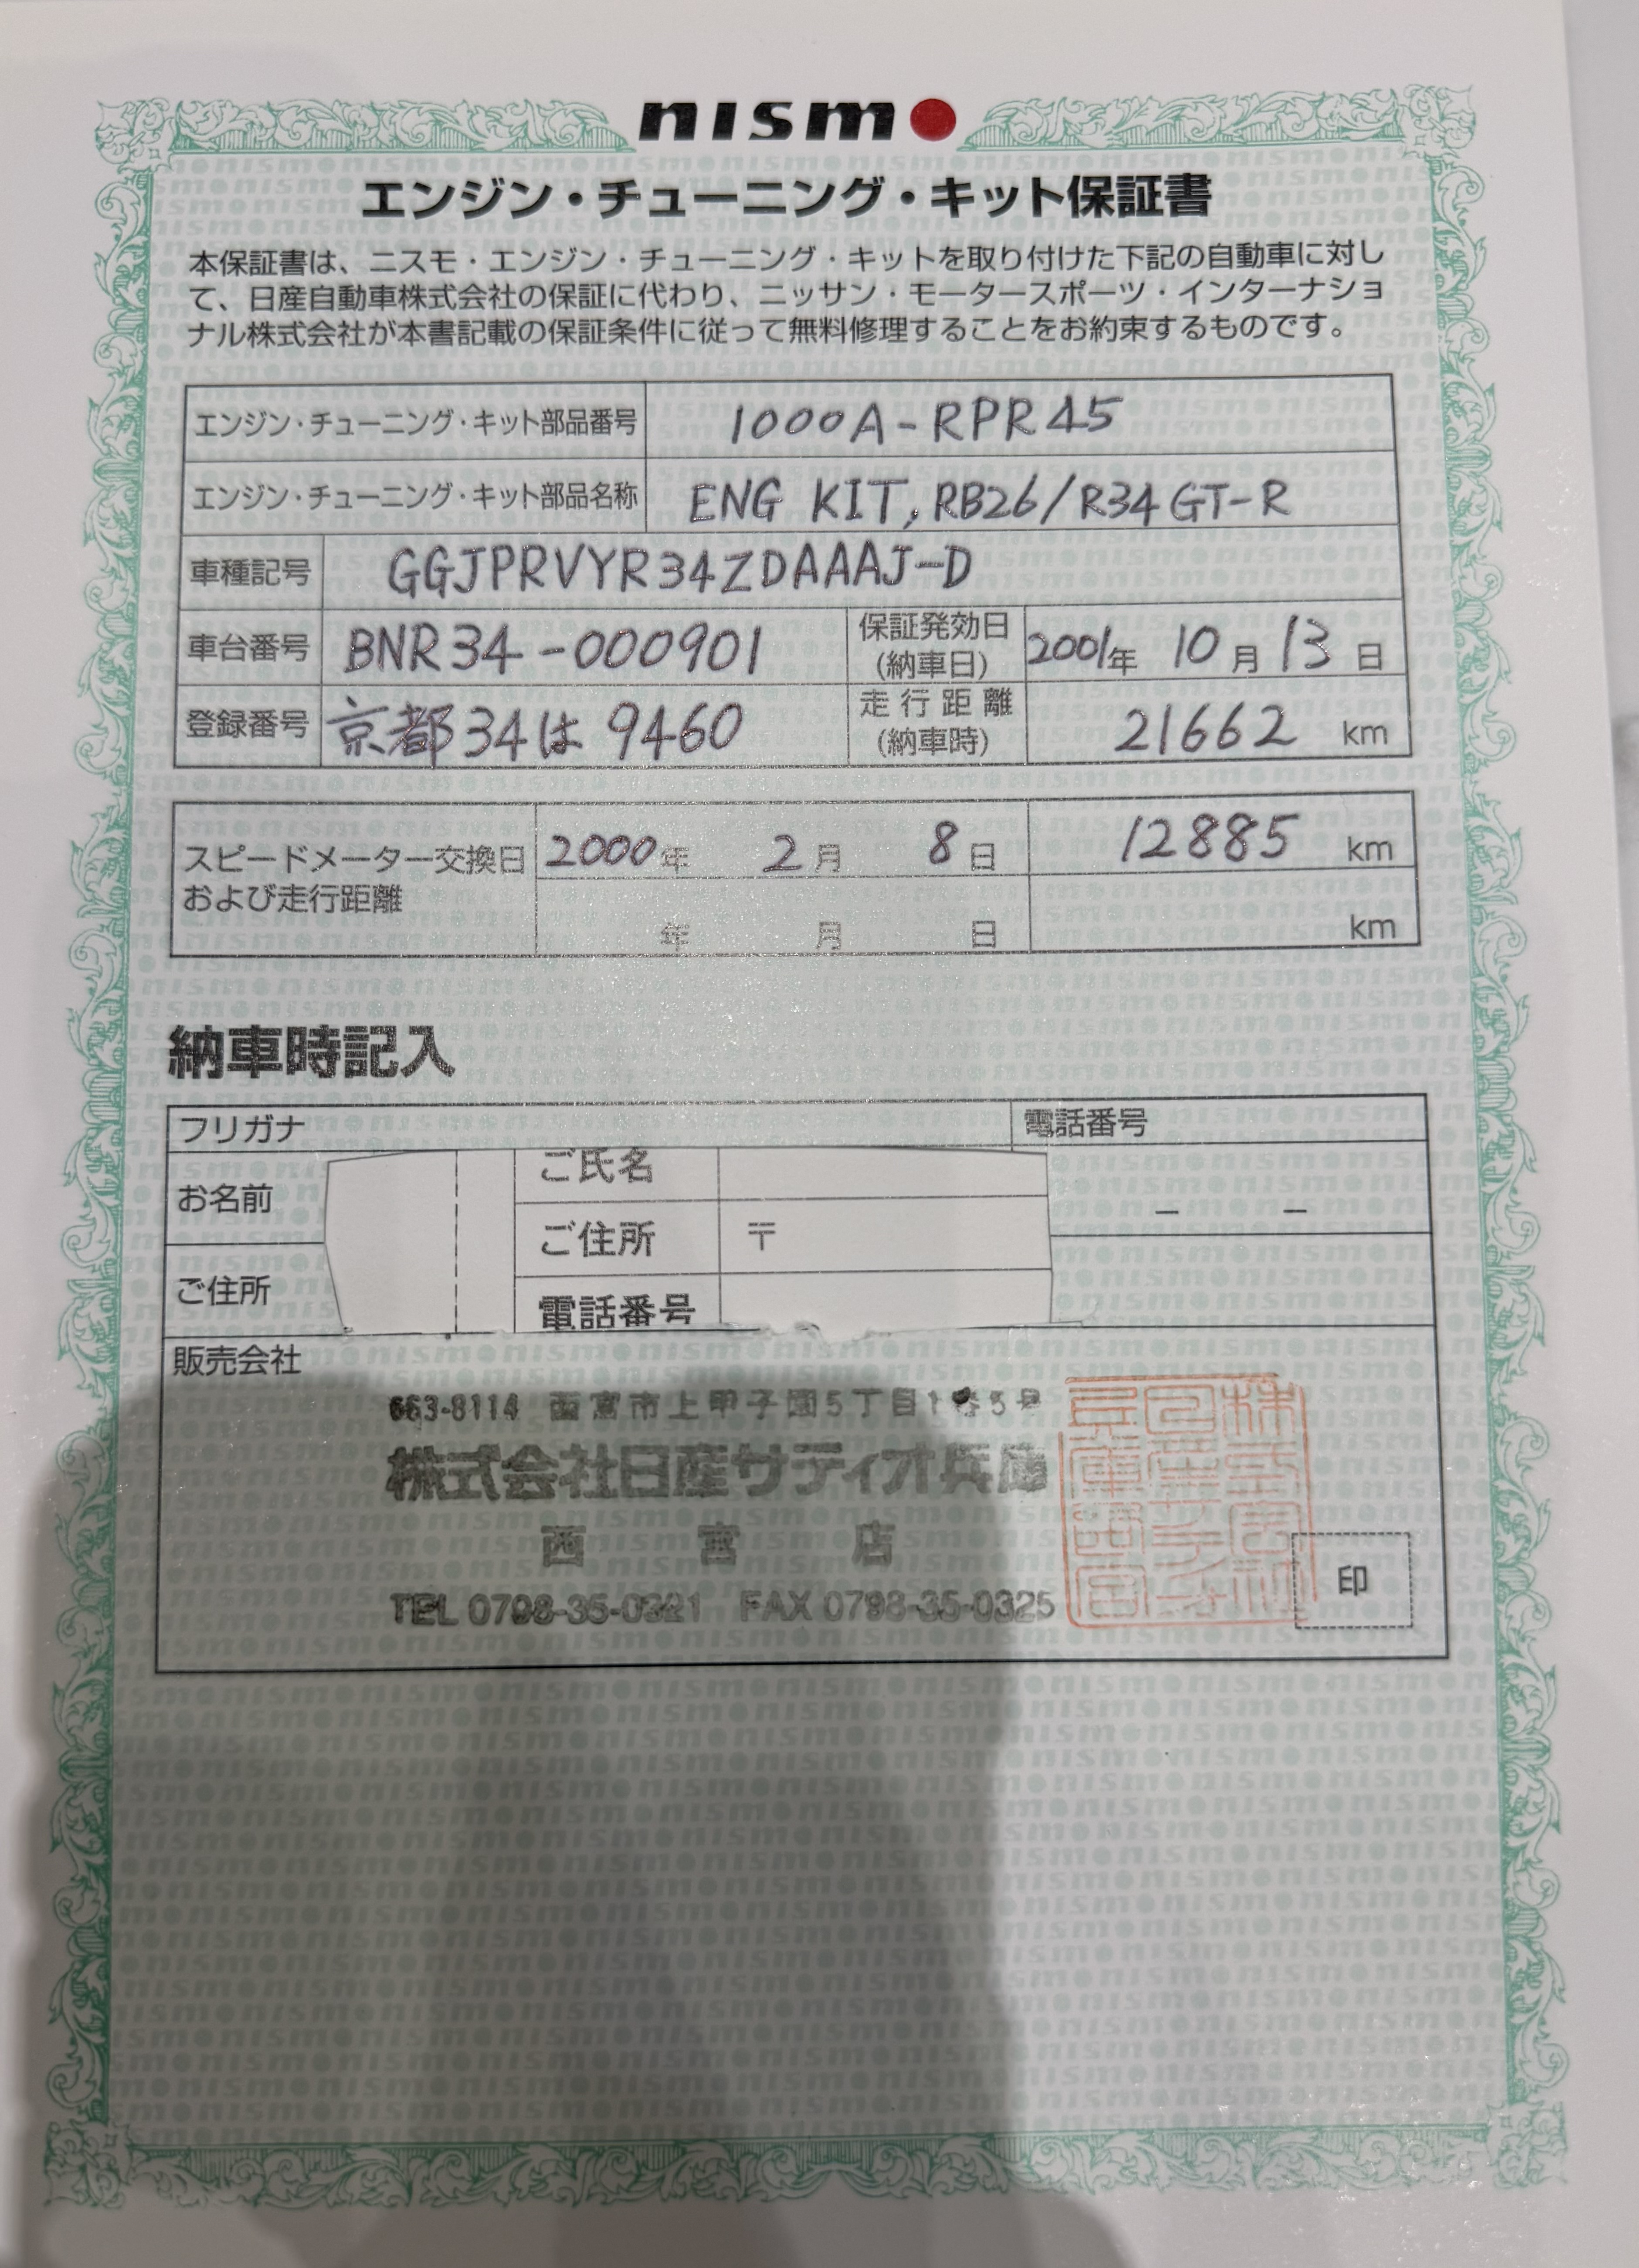 nismo
エンジン・チューニング・キット保証書
本保証書は、ニスモ・エンジン・チューニング・キットを取り付けた下記の自動車に対し
て、日産自動車株式会社の保証に代わり、ニッサン・モータースポーツ・インターナショ
ナル株式会社が本書記載の保証条件に従って無料修理することをお約束するものです。
エンジン・チューニング・キット部品番号 1000A-RPR45
エンジン・チューニング・キット部品名称 ENG KIT, RB26/R34 GT-R
車種記号 GGJPRVYR34ZDAAAJ-D
車台番号 BNR34-000901 保証発効日(納車日) 2001年 10月 13日
登録番号 京都34は 9460 走行距離(納車時) 21662 km
スピードメーター交換日 2000年 2月 8日 12885 km
および走行距離 年 月 日 km
納車時記入
フリガナ 電話番号
お名前 ご氏名 － －
ご住所 〒
ご住所
電話番号
販売会社
663-8114 西宮市上甲子園5丁目1番5号
株式会社日産サティオ兵庫
西宮店
TEL 0798-35-0321 FAX 0798-35-0325
印